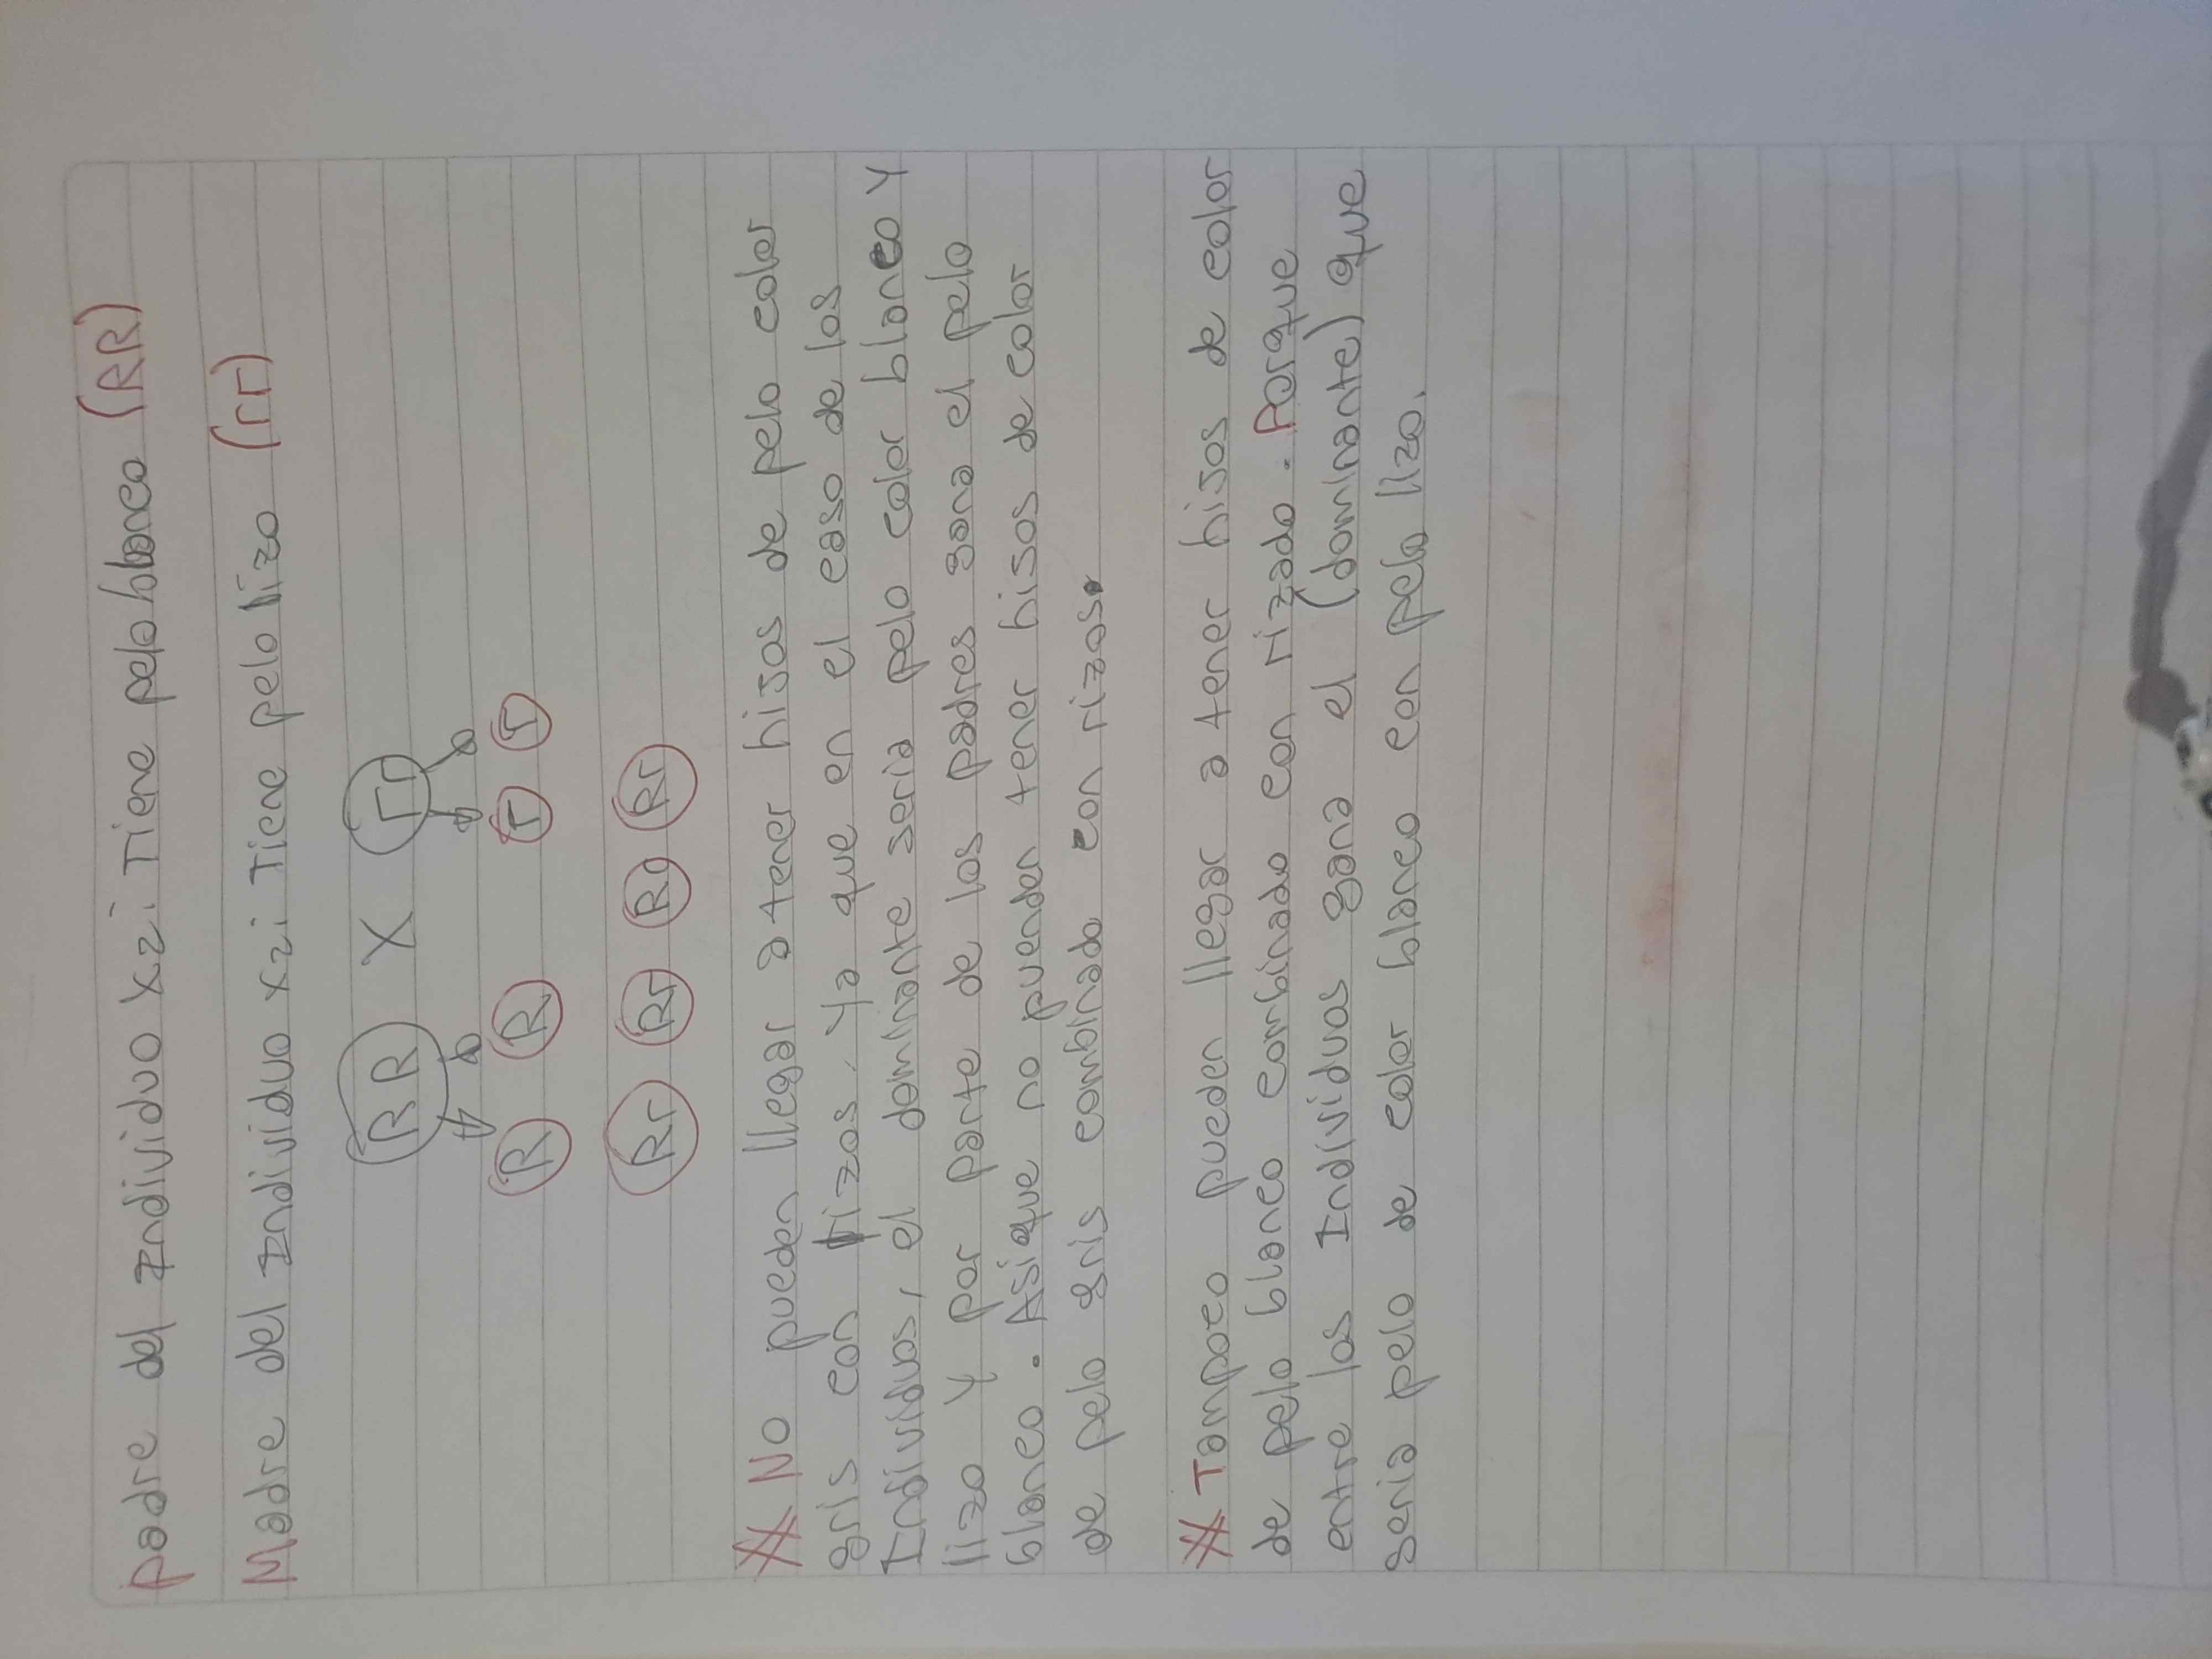 Padre del Individuo x2i Tiene pelo blanco (RR)
Madre del Individuo x2i Tiene pelo lizo (rr)
RR X rr
R R r r
Rr Rr Rr Rr
No pueden llegar a tener hijos de pelo color
gris con rizos, Ya que en el caso de los
Individuos, el dominante seria pelo color blanco Y
lizo Y por parte de los padres gana el pelo
blanco. Asique no puenden tener hisos de color
de pelo gris combinado con rizos.
Tampoco pueden llegar a tener hijos de color
de pelo blanco combinado con rizado. Porque
entre los Individuos gana el (dominante) que
seria pelo de color blanco con pelo lizo.